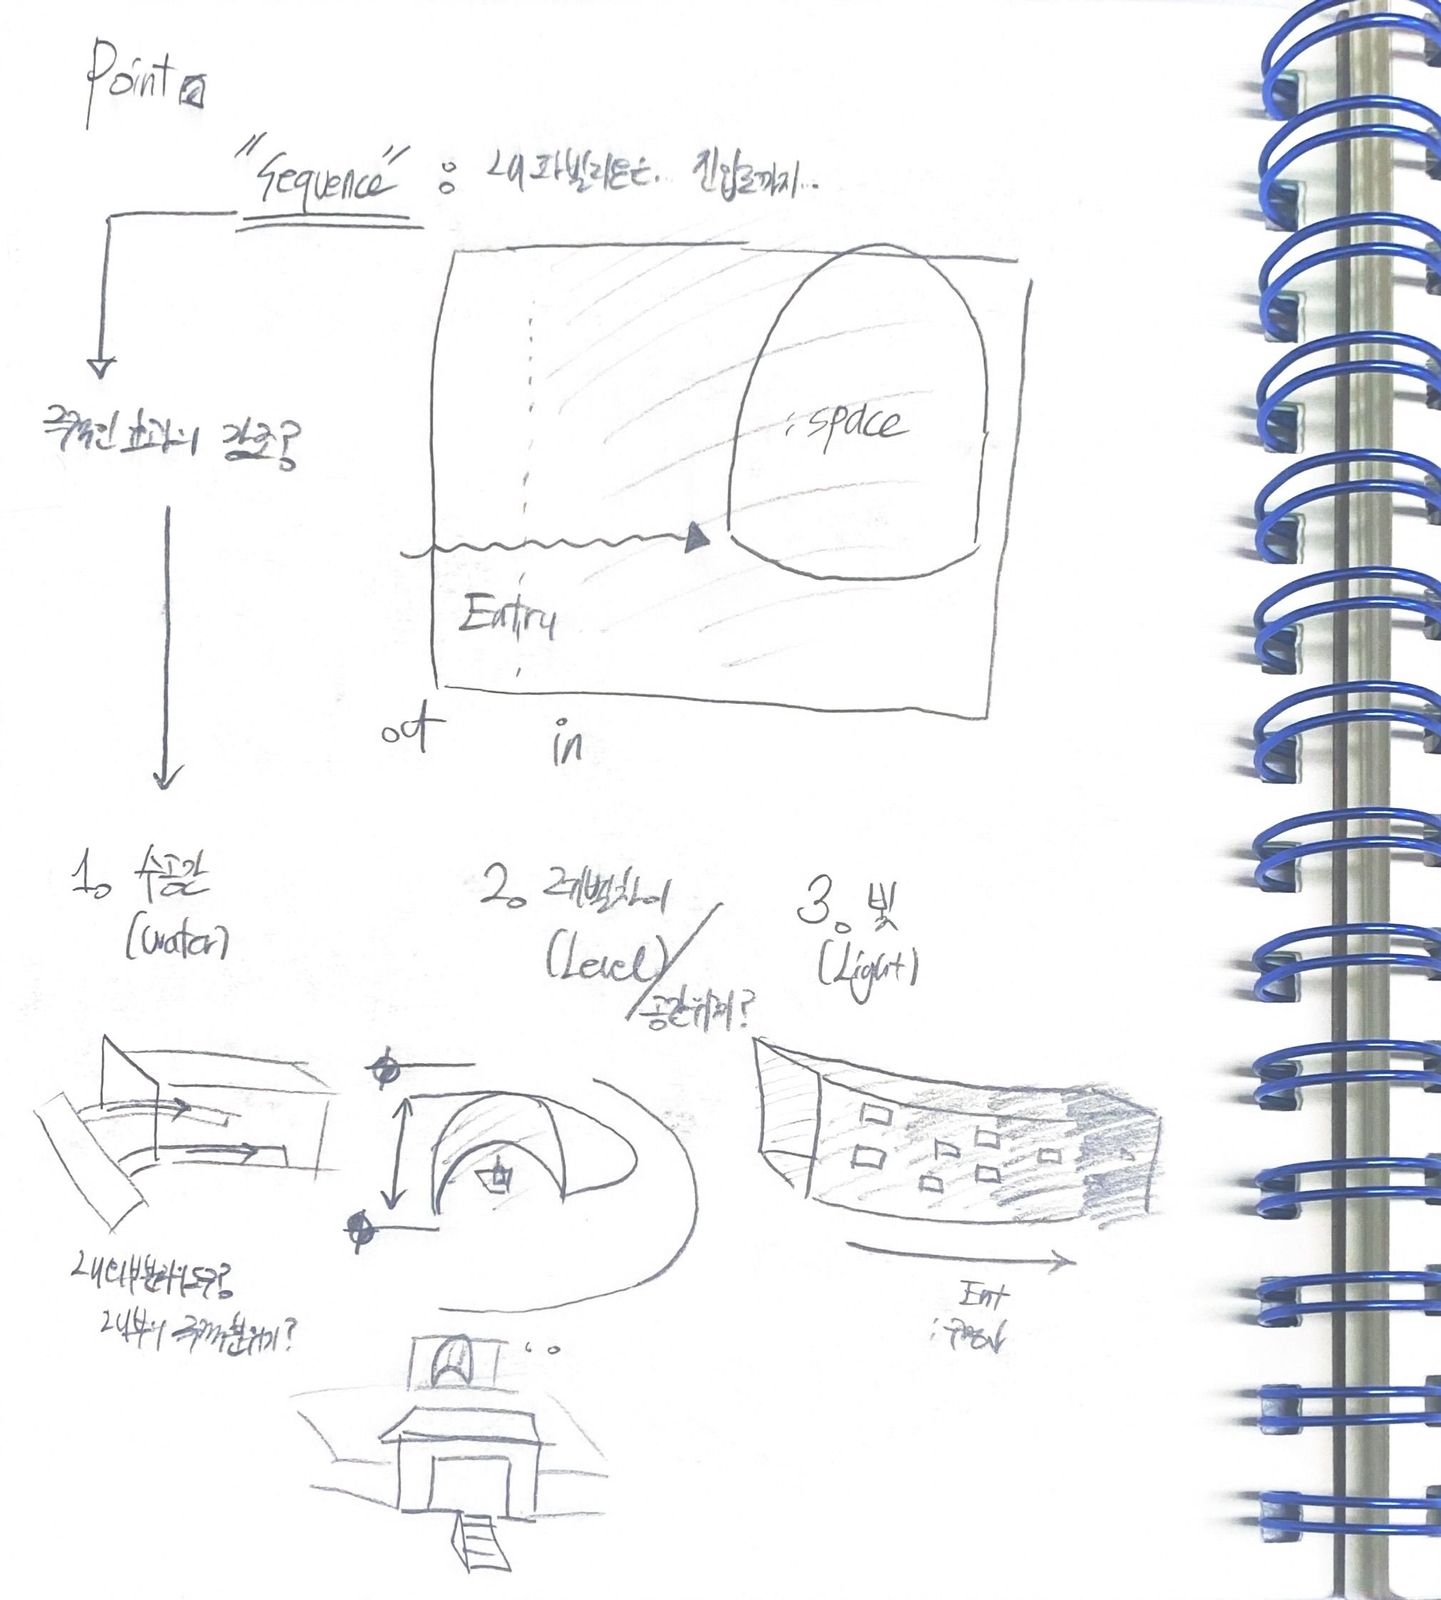 Point
"Sequence" : 내 파빌리온은.. 진입로까지..
극적인 효과의 강조?
: space
Entry
out
in
1. 수공간
(water)
2. 레벨차이
(Level)
공간위치?
3. 빛
(Light)
내외부분리의도구?
내부의 극적분위기?
Ent